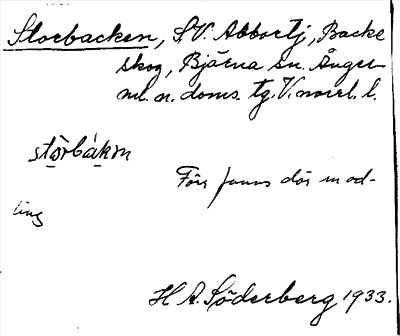 Storbacken, SV. Abbortj, Backe
skog, Bjärna sn. Ånger-
ml. n. doms. tg. V. norrl. l.
stòrbákɒn
Förr fanns där mod-
ling
H A. Söderberg 1933.